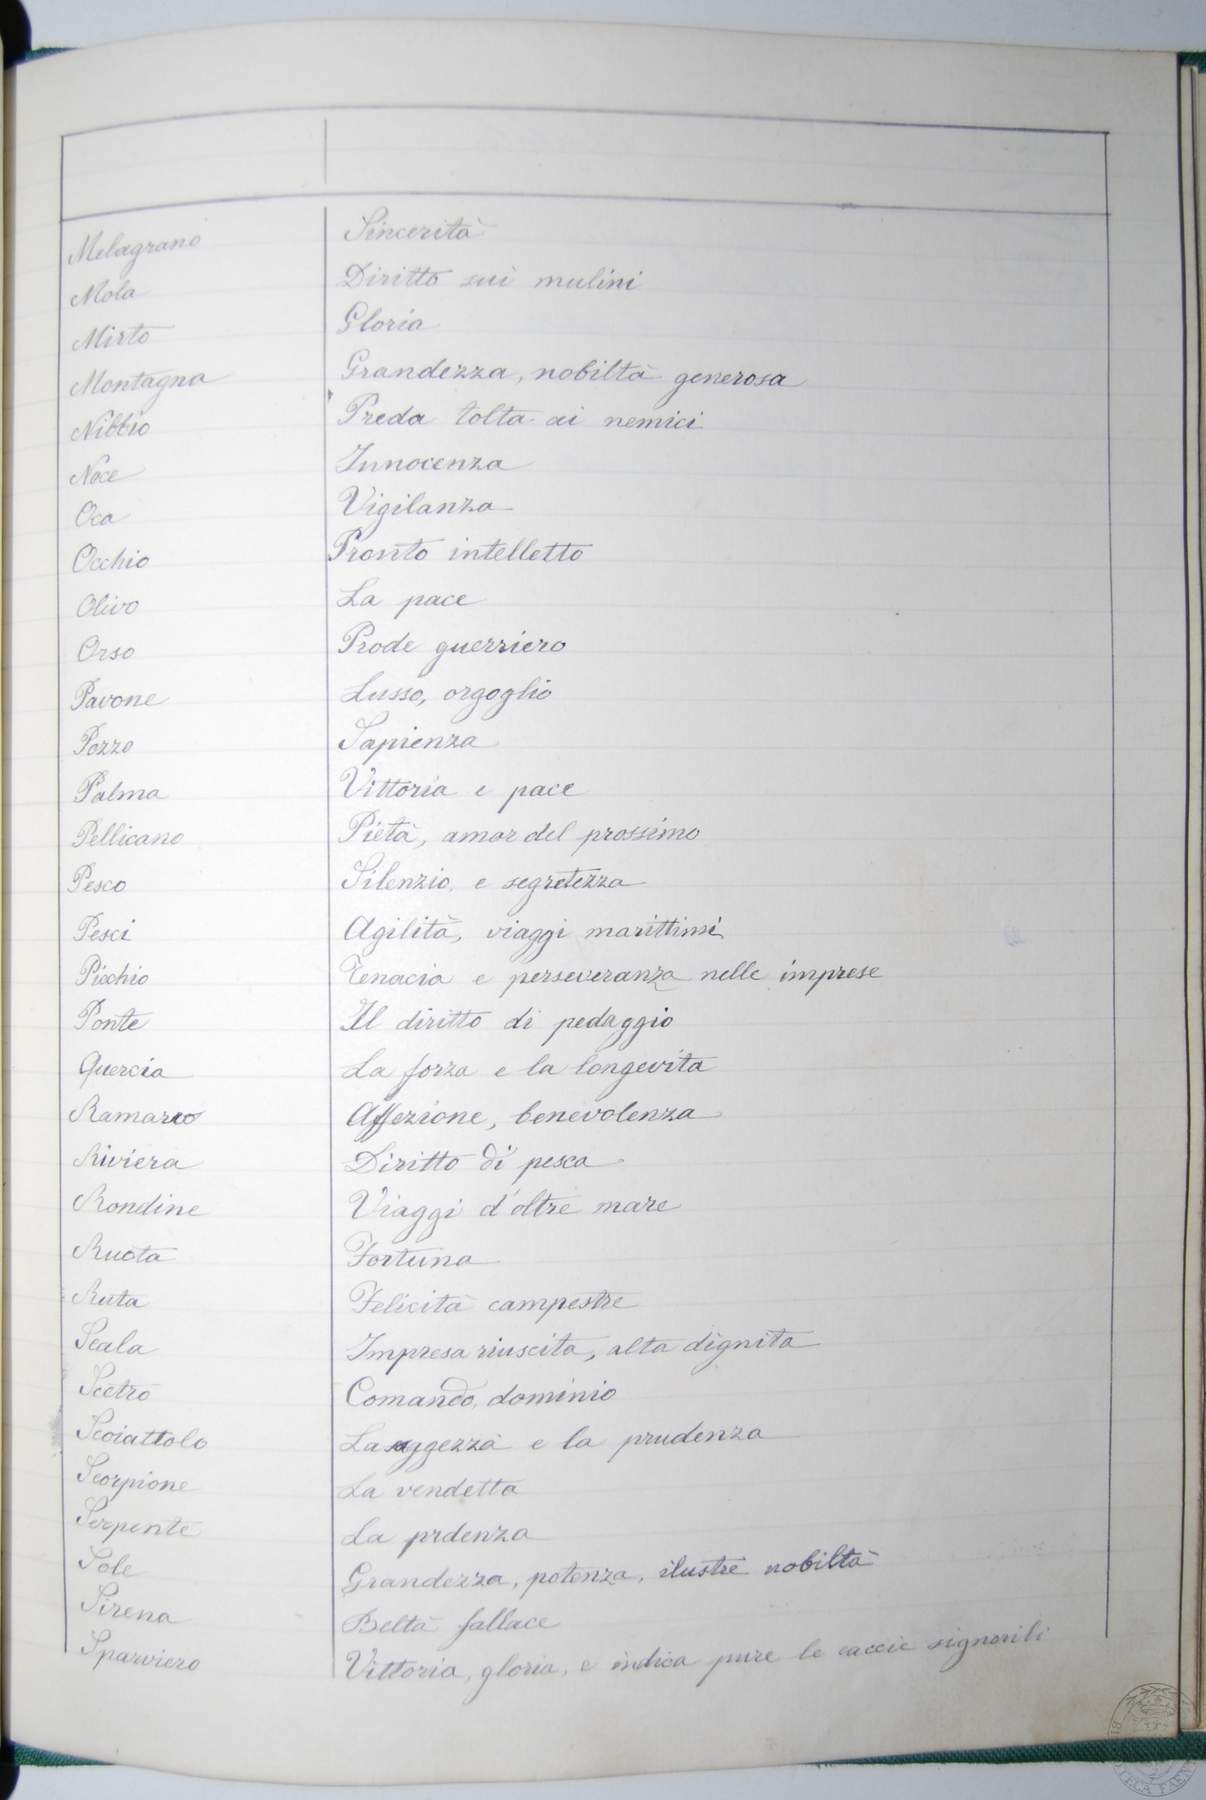 Melagrano Sincerità
Mola Diritto sui mulini
Mirto Gloria
Montagna Grandezza, nobiltà generosa
Nibbio Preda tolta ai nemici
Noce Innocenza
Oca Vigilanza
Occhio Pronto intelletto
Olivo La pace
Orso Prode guerriero
Pavone Lusso, orgoglio
Pozzo Sapienza
Palma Vittoria e pace
Pellicano Pietà, amor del prossimo
Pesco Silenzio, e segretezza
Pesci Agilità, viaggi marittimi
Picchio Tenacia e perseveranza nelle imprese
Ponte Il diritto di pedaggio
Quercia La forza e la longevita
Ramarro Affezione, benevolenza
Riviera Diritto di pesca
Rondine Viaggi d'oltre mare
Ruota Fortuna
Ruta Felicità campestre
Scala Impresa riuscita, alta dignita
Scetro Comando, dominio
Scoiattolo La saggezza e la prudenza
Scorpione La vendetta
Serpente La prdenza
Sole Grandezza, potenza, ilustre nobiltà
Sirena Beltà fallace
Sparviero Vittoria, gloria, e indica pure le caccie signorili